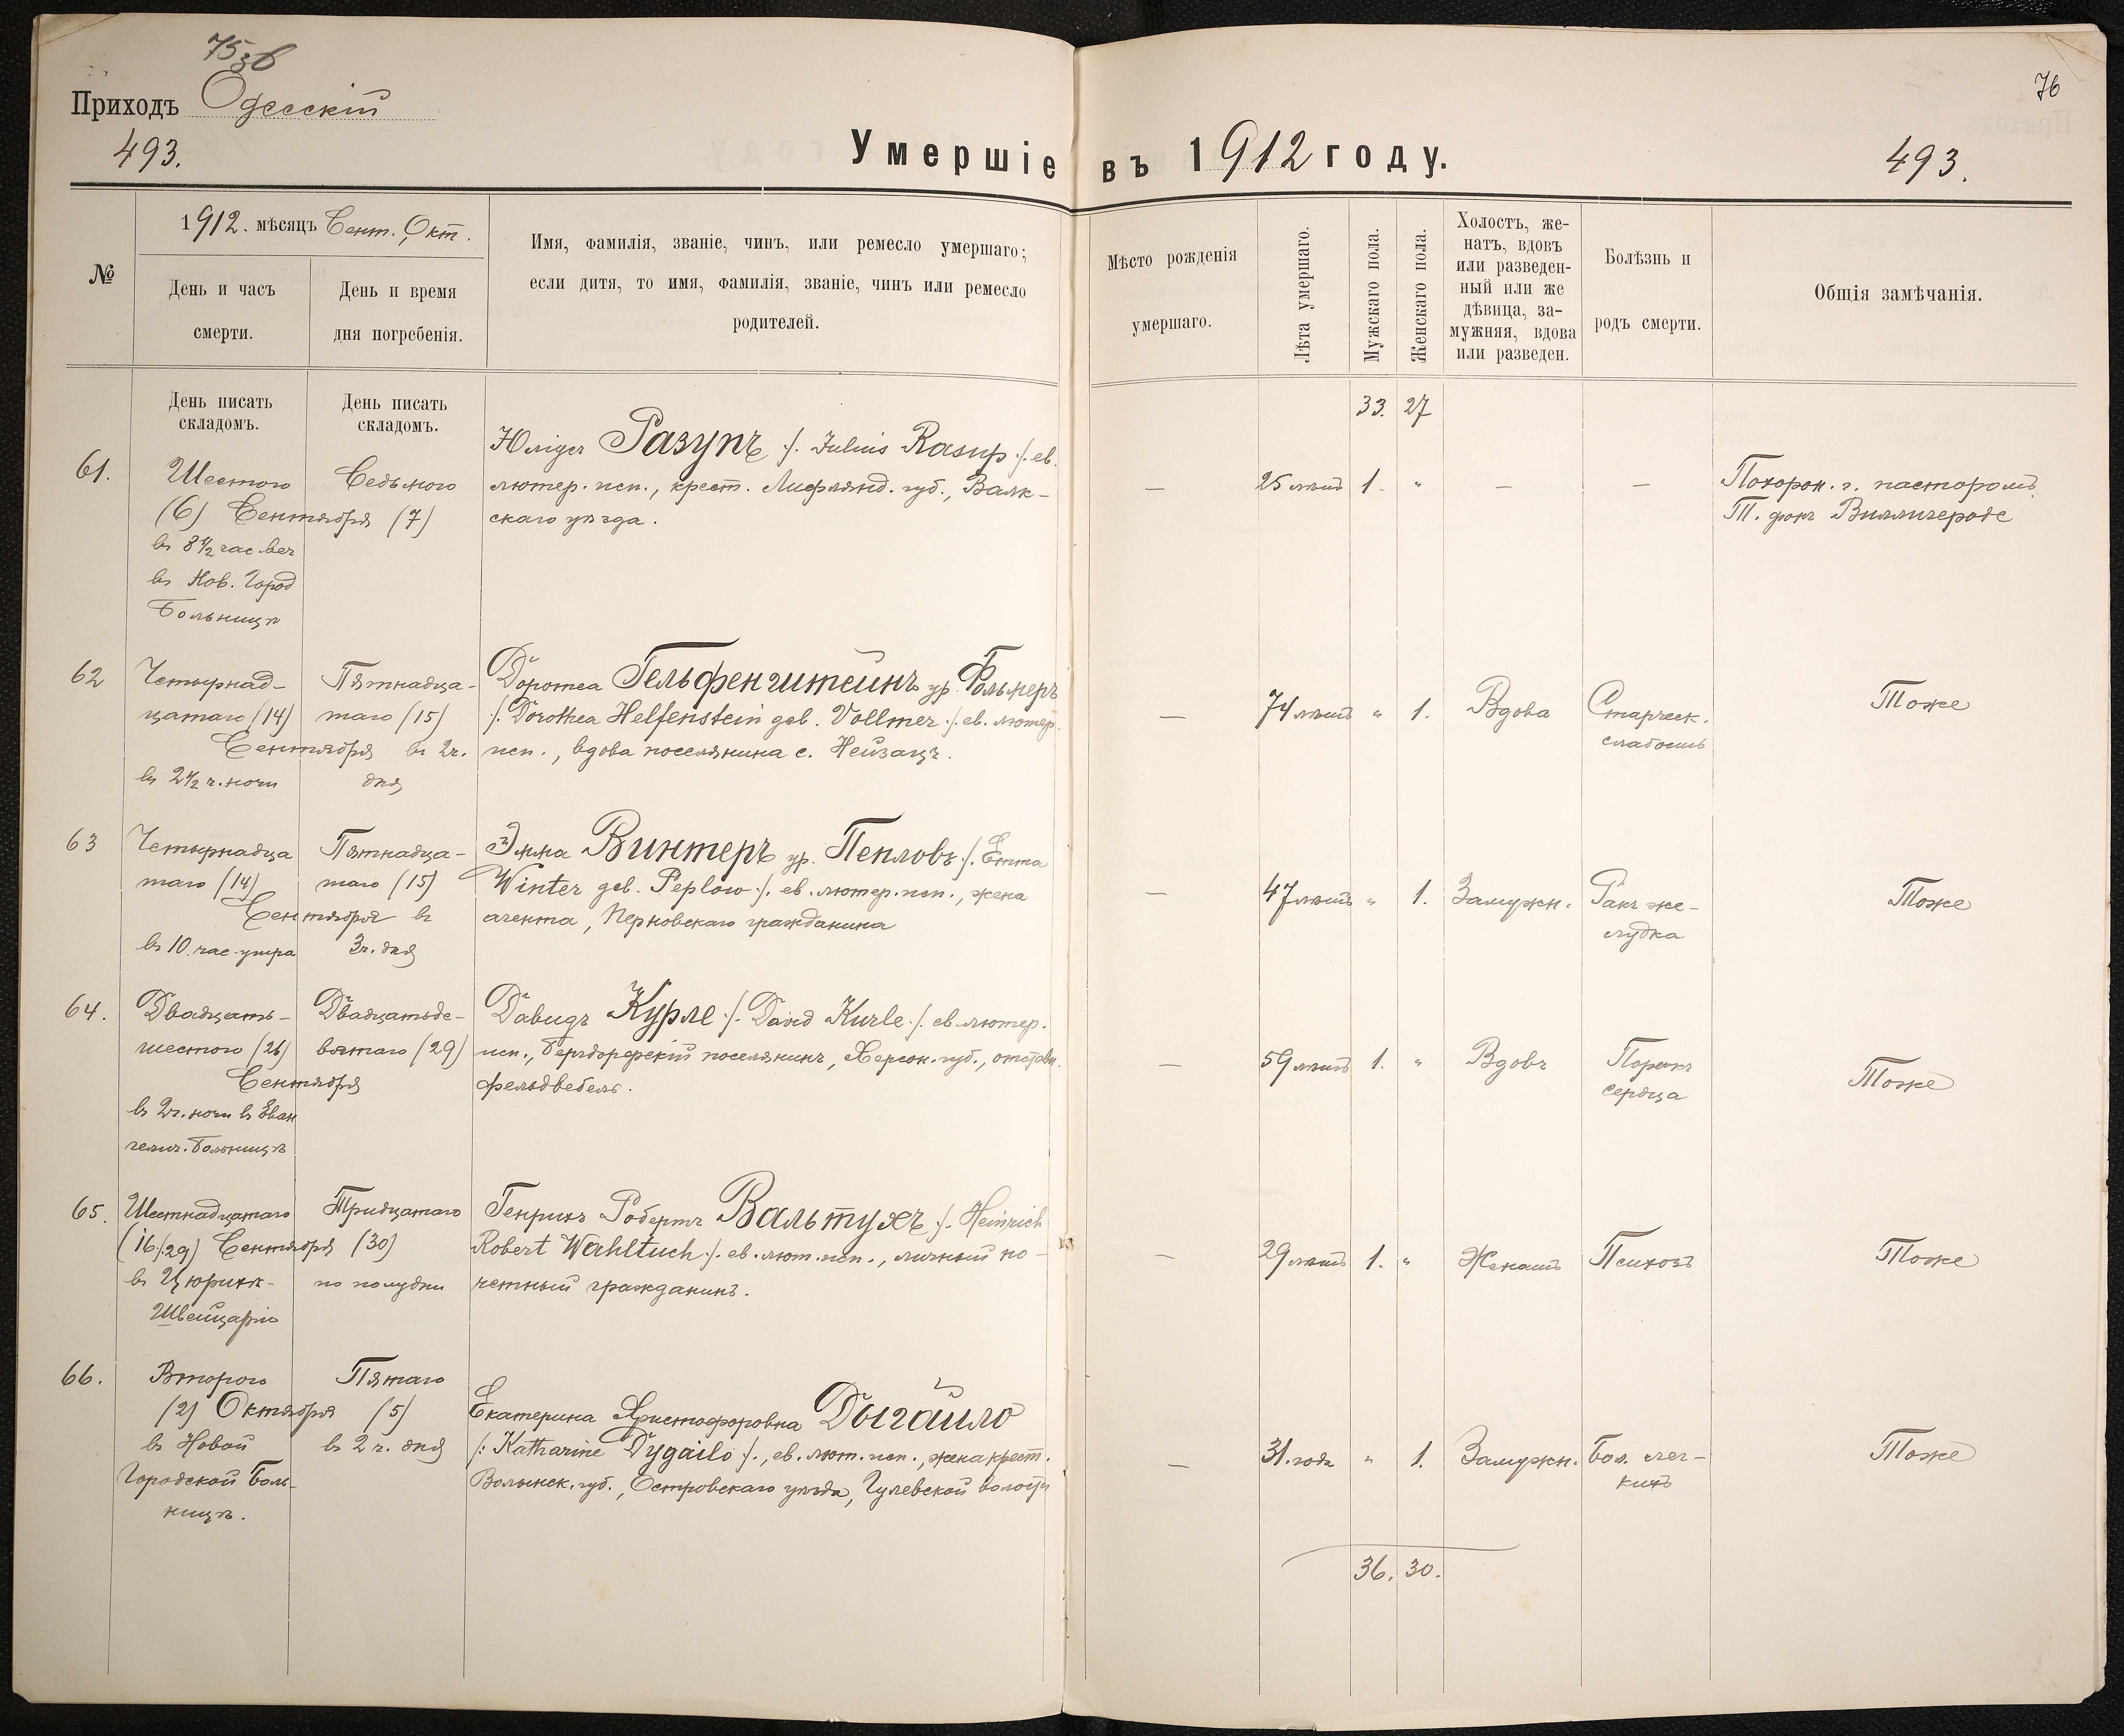 75
Приходъ Одесскій
493.
Умершіе въ 1912 году.
76
493.
№
1912. мѣсяцъ Сент., Окт.
День и часъ
смерти.
День и время
дня погребенія.
Имя, фамилія, званіе, чинъ, или ремесло умершаго;
если дитя, то имя, фамилія, званіе, чинъ или ремесло
родителей.
Мѣсто рожденія
умершаго.
Лѣта умершаго.
Мужскаго пола.
Женскаго пола.
Холостъ, же-
натъ, вдовъ
или разведен-
ный или же
дѣвица, за-
мужняя, вдова
или разведен.
Болѣзнь и
родъ смерти.
Общія замѣчанія.
День писать
складомъ.
День писать
складомъ.
33. 27
61.
Шестого
(6) Сентября
въ 8 1/2 час веч
въ Нов. Город
Больницѣ
Седьмого
(7)
Юліусъ Разупъ /. Julius Rasup ./. ев.
лютер. исп., крест. Лифлянд. губ., Валк-
скаго уѣзда.
—
25 лѣтъ
1. "
—
—
Похорон. г. пасторомъ
Т. фонъ Виллигероде
62
Четырнад-
цатаго (14)
Сентября
въ 2 1/2 ч. ночи
Пятнадца-
таго (15)
въ 2ч.
дня
Доротеа Гельфенштейнъ ур. Фольмеръ
/. Dorothea Helfenstein geb. Vollmer ./. ев. лютер.
исп., вдова поселянина с. Нейзацъ.
—
74 лѣтъ
" 1.
Вдова
Старческ.
слабость
Тоже
63
Четырнадца
таго (14)
Сентября
въ 10 час утра
Пятнадца-
таго (15)
въ
3ч. дня
Эмма Винтеръ ур. Пепловъ ./. Emma
Winter geb. Peplow ./. ев. лютер. исп., жена
агента, Перновскаго гражданина
—
47 лѣтъ
" 1.
Замужн.
Ракъ же-
лудка
Тоже
64.
Двадцать-
шестого (26)
Сентября
въ 2ч. ночи въ Еван
гелич. Больницѣ
Двадцатьде-
вятаго (29)
Давидъ Курле ./. David Kurle ./. ев. лютер.
исп., Бергдорфскій поселянинъ, Херсон. губ., отставн.
фельдвебель.
—
59 лѣтъ
1. "
Вдовъ
Порокъ
сердца
Тоже
65.
Шестнадцатаго
(16/29) Сентября
въ Цюрихѣ-
Швейцаріи
Тридцатаго
(30)
по полудни
Генрихъ Робертъ Вальтухъ ./. Heinrich
Robert Wahltuch ./. ев. лют. исп., личный по-
четный гражданинъ.
—
29 лѣтъ
1. "
Женатъ
Психозъ
Тоже
66.
Второго
(2) Октября
въ Новой
Городской Боль-
ницѣ.
Пятаго
(5)
въ 2 ч. дня
Екатерина Христофоровна Дыгайло
/: Katharine Dygailo ./., ев. лют. исп., жена крест.
Волынск. губ., Островскаго уѣзда, Гулевской волости
—
31. года
" 1.
Замужн.
Бол. лег-
кихъ
Тоже
36. 30.